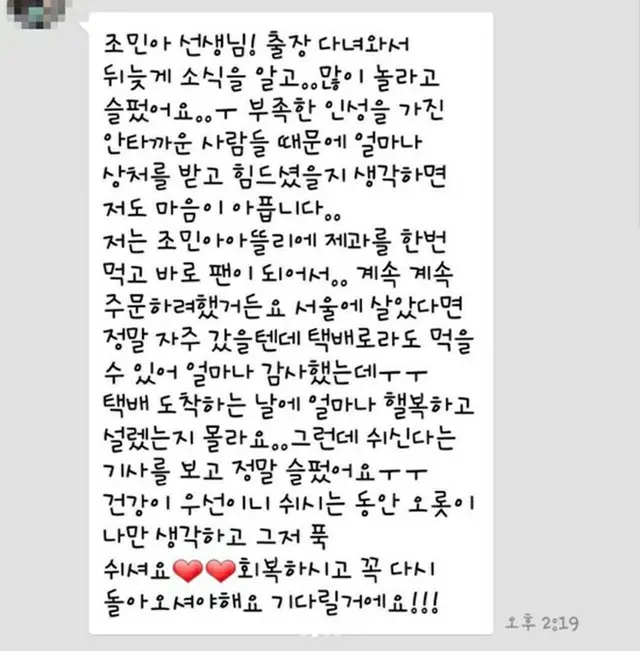 조민아 선생님! 출장 다녀와서
뒤늦게 소식을 알고..많이 놀라고
슬펐어요..ㅜ 부족한 인성을 가진
안타까운 사람들 때문에 얼마나
상처를 받고 힘드셨을지 생각하면
저도 마음이 아픕니다..
저는 조민아아뜰리에 제과를 한번
먹고 바로 팬이 되어서.. 계속 계속
주문하려했거든요 서울에 살았다면
정말 자주 갔을텐데 택배로라도 먹을
수 있어 얼마나 감사했는데ㅜㅜ
택배 도착하는 날에 얼마나 행복하고
설렜는지 몰라요..그런데 쉬신다는
기사를 보고 정말 슬펐어요ㅜㅜ
건강이 우선이니 쉬시는 동안 오롯이
나만 생각하고 그저 푹
쉬셔요❤❤회복하시고 꼭 다시
돌아오셔야해요 기다릴거에요!!!
오후 2:19